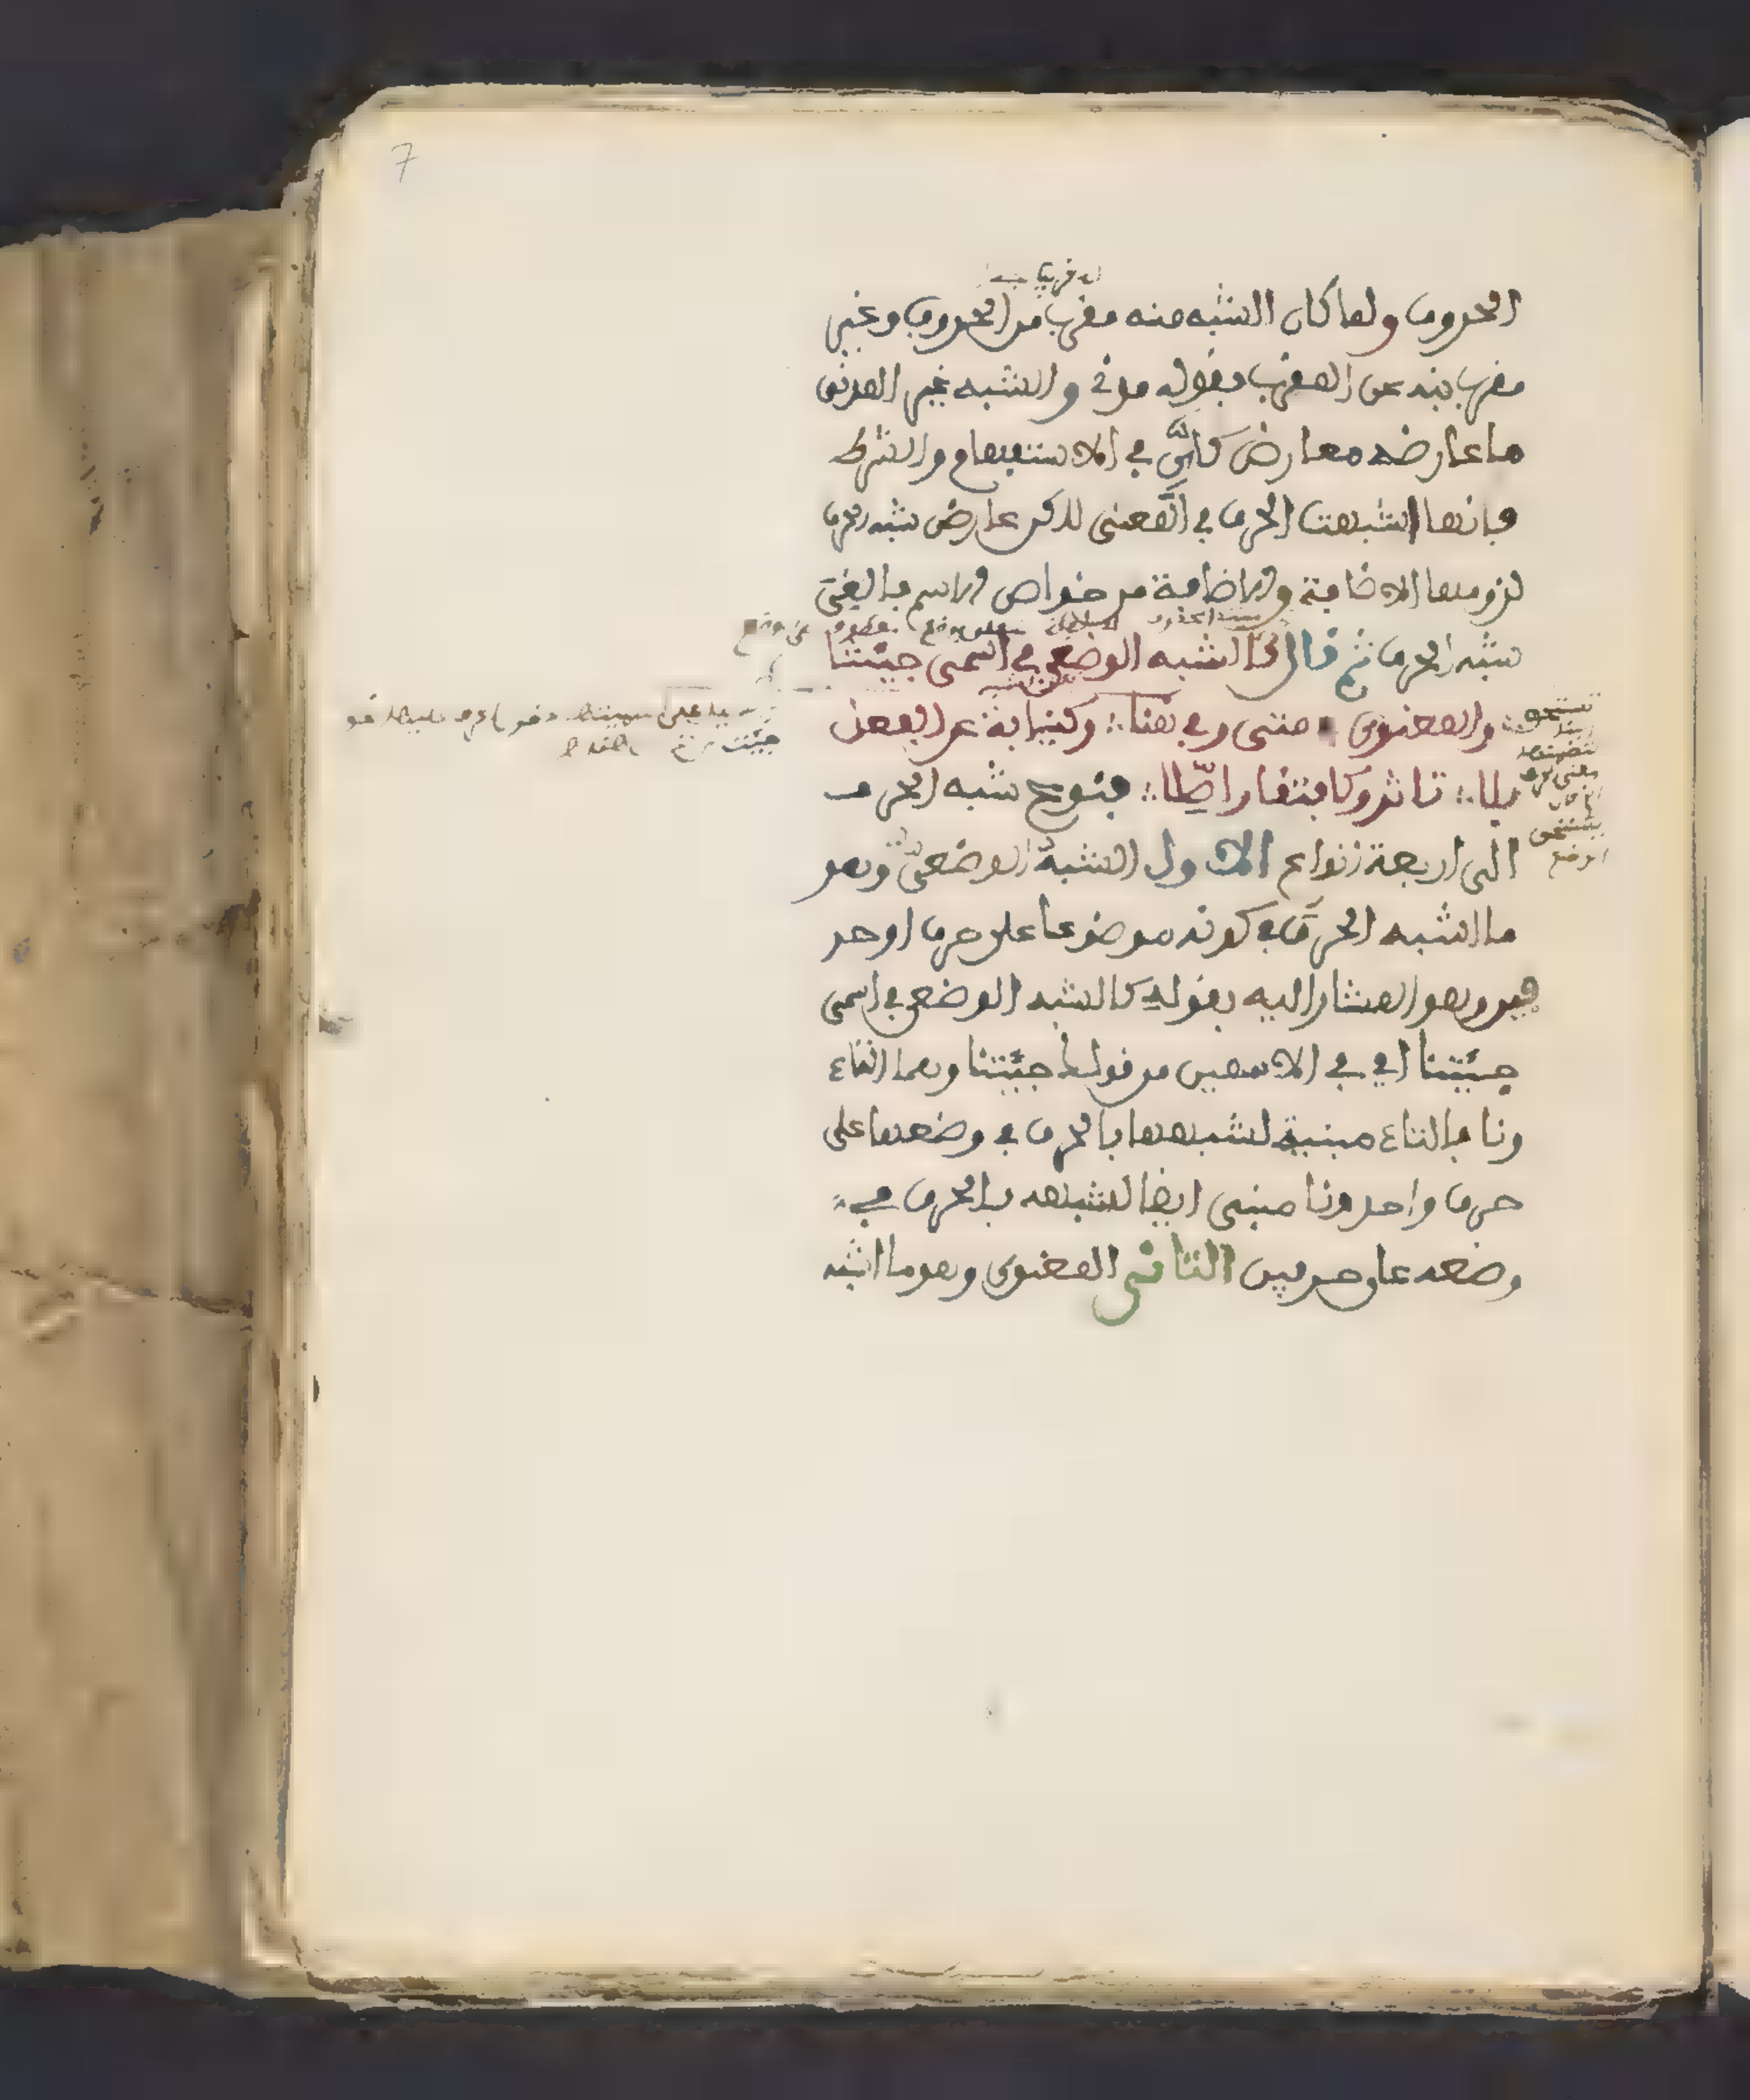 7
الحروف ولما كان الشبه منه مقرب من الحروف وغير
مقرب نبه عن المقرب بقوله مدني والشبه غير المدني
ما عارضه معارض كأيّ في الاستفهام والشرط
فإنها اشبهت الحرف في المعنى لاكن عارض شبه الحرف
لزومها الاضافة والاضافة من خواص الاسم فالغي
شبه الحرف ثم قال كالشبه الوضعي في اسمي جئتنا
والمعنوي في متى وفي هنا ∴ وكنيابة عن الفعل
بلا ∴ تأثر وكافتقار اصّلا ∴ فنوع شبه الحرف
الى اربعة انواع الاول الشبه الوضعي وهو
ما اشبه الحرف في كونه موضوعا على حرف او حر
فين وهو المشار اليه بقوله كالشبه الوضعي في اسمي
جئتنا اي في الاسمين من قولك جئتنا وهما التاء
ونا فالتاء مبنية لشبهها بالحرف في وضعها على
حرف واحد ونا مبني ايضا لشبهه بالحرف في
وضعه على حرفين الثاني المعنوي وهو ما اشبه